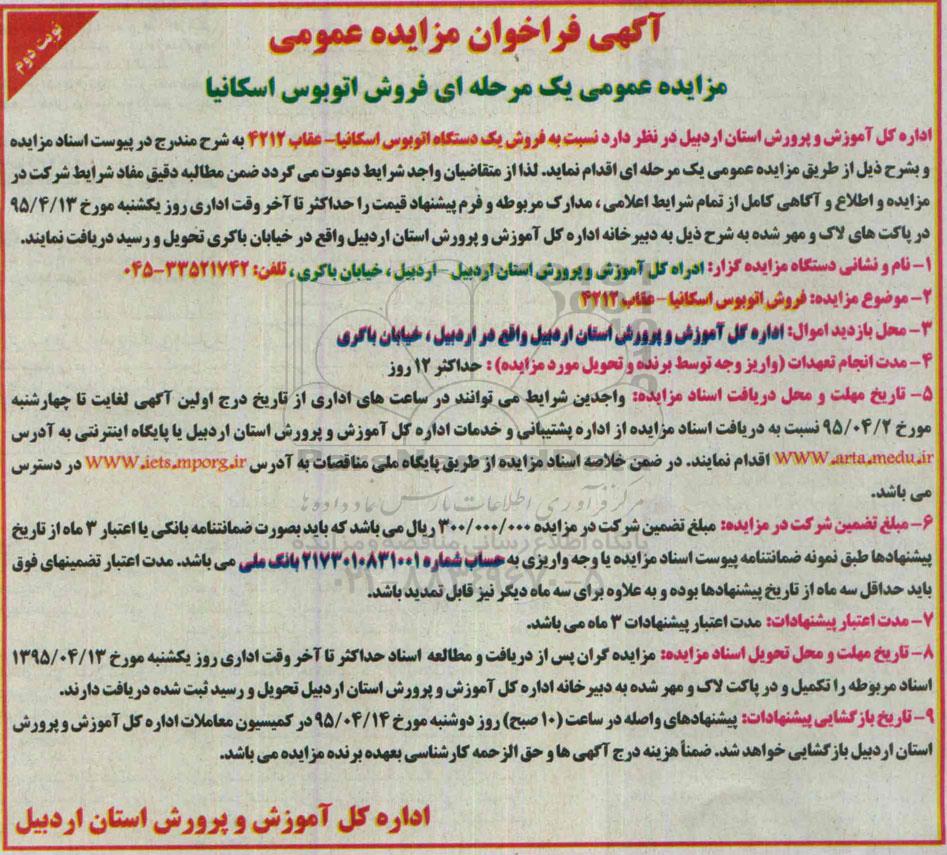 نوبت دوم
آگهی فراخوان مزایده عمومی
مزایده عمومی یک مرحله ای فروش اتوبوس اسکانیا
اداره کل آموزش و پرورش استان اردبیل در نظر دارد نسبت به فروش یک دستگاه اتوبوس اسکانیا- عقاب ۴۲۱۲ به شرح مندرج در پیوست اسناد مزایده
و بشرح ذیل از طریق مزایده عمومی یک مرحله ای اقدام نماید. لذا از متقاضیان واجد شرایط دعوت می گردد ضمن مطالبه دقیق مفاد شرایط شرکت در
مزایده و اطلاع و آگاهی کامل از تمام شرایط اعلامی ، مدارک مربوطه و فرم پیشنهاد قیمت را حداکثر تا آخر وقت اداری روز یکشنبه مورخ ۹۵/۴/۱۳
در پاکت های لاک و مهر شده به شرح ذیل به دبیرخانه اداره کل آموزش و پرورش استان اردبیل واقع در خیابان باکری تحویل و رسید دریافت نمایند.
۱- نام و نشانی دستگاه مزایده گزار: ادراه کل آموزش و پرورش استان اردبیل - اردبیل ، خیابان باکری ، تلفن: ۳۳۵۲۱۷۴۲-۰۴۵
۲- موضوع مزایده: فروش اتوبوس اسکانیا - عقاب ۴۲۱۲
۳- محل بازدید اموال: اداره کل آموزش و پرورش استان اردبیل واقع در اردبیل ، خیابان باکری
۴- مدت انجام تعهدات (واریز وجه توسط برنده و تحویل مورد مزایده) : حداکثر ۱۲ روز
۵- تاریخ مهلت و محل دریافت اسناد مزایده: واجدین شرایط می توانند در ساعت های اداری از تاریخ درج اولین آگهی لغایت تا چهارشنبه
مورخ ۹۵/۰۴/۲ نسبت به دریافت اسناد مزایده از اداره پشتیبانی و خدمات اداره کل آموزش و پرورش استان اردبیل یا پایگاه اینترنتی به آدرس
www.arta.medu.ir اقدام نمایند. در ضمن خلاصه اسناد مزایده از طریق پایگاه ملی مناقصات به آدرس www.iets.mporg.ir در دسترس
می باشد.
۶- مبلغ تضمین شرکت در مزایده: مبلغ تضمین شرکت در مزایده ۳۰۰/۰۰۰/۰۰۰ ریال می باشد که باید بصورت ضمانتنامه بانکی با اعتبار ۳ ماه از تاریخ
پیشنهادها طبق نمونه ضمانتنامه پیوست اسناد مزایده یا وجه واریزی به حساب شماره ۲۱۷۳۰۱۰۸۳۱۰۰۱ بانک ملی می باشد. مدت اعتبار تضمینهای فوق
باید حداقل سه ماه از تاریخ پیشنهادها بوده و به علاوه برای سه ماه دیگر نیز قابل تمدید باشد.
۷- مدت اعتبار پیشنهادات: مدت اعتبار پیشنهادات ۳ ماه می باشد.
۸- تاریخ مهلت و محل تحویل اسناد مزایده: مزایده گران پس از دریافت و مطالعه اسناد حداکثر تا آخر وقت اداری روز یکشنبه مورخ ۱۳۹۵/۰۴/۱۳
اسناد مربوطه را تکمیل و در پاکت لاک و مهر شده به دبیرخانه اداره کل آموزش و پرورش استان اردبیل تحویل و رسید ثبت شده دریافت دارند.
۹- تاریخ بازگشایی پیشنهادات: پیشنهادهای واصله در ساعت (۱۰ صبح) روز دوشنبه مورخ ۹۵/۰۴/۱۴ در کمیسیون معاملات اداره کل آموزش و پرورش
استان اردبیل بازگشایی خواهد شد. ضمناً هزینه درج آگهی ها و حق الزحمه کارشناسی بعهده برنده مزایده می باشد.
اداره کل آموزش و پرورش استان اردبیل
مرکز فرآوری اطلاعات پارس نماد داده ها
پایگاه اطلاع رسانی مناقصه و مزایده
۰۲۱-۸۸۳۴۹۶۷۰-۵